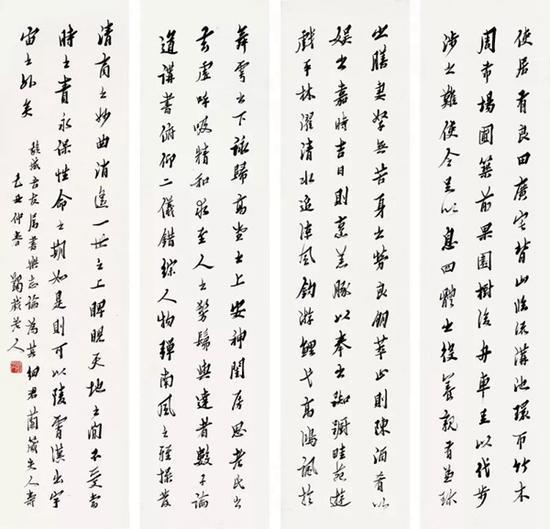 使居有良田廣宅背山臨流溝池環匝竹木
周布場圃築前果園樹後舟車足以代步
涉之難使令足以息四體之役養親有兼珎
之膳妻孥無苦身之勞良朋萃止則陳酒肴以
娱之嘉時吉日則烹羔豚以奉之踟蹰畦苑遊
戲平林濯清水追凉風釣游鯉弋高鴻諷於
舞雩之下詠歸高堂之上安神閨房思老氏之
玄虚呼吸精和求至人之髣髴與達者數子論
道講書俯仰二儀錯綜人物彈南風之雅操發
清商之妙曲逍遥一世之上睥睨天地之間不受當
時之責永保性命之期如是則可以陵霄漢出宇
宙之外矣
藏吉友属書樂志論為其細君蘭箴夫人壽
仲春 蠲戲老人